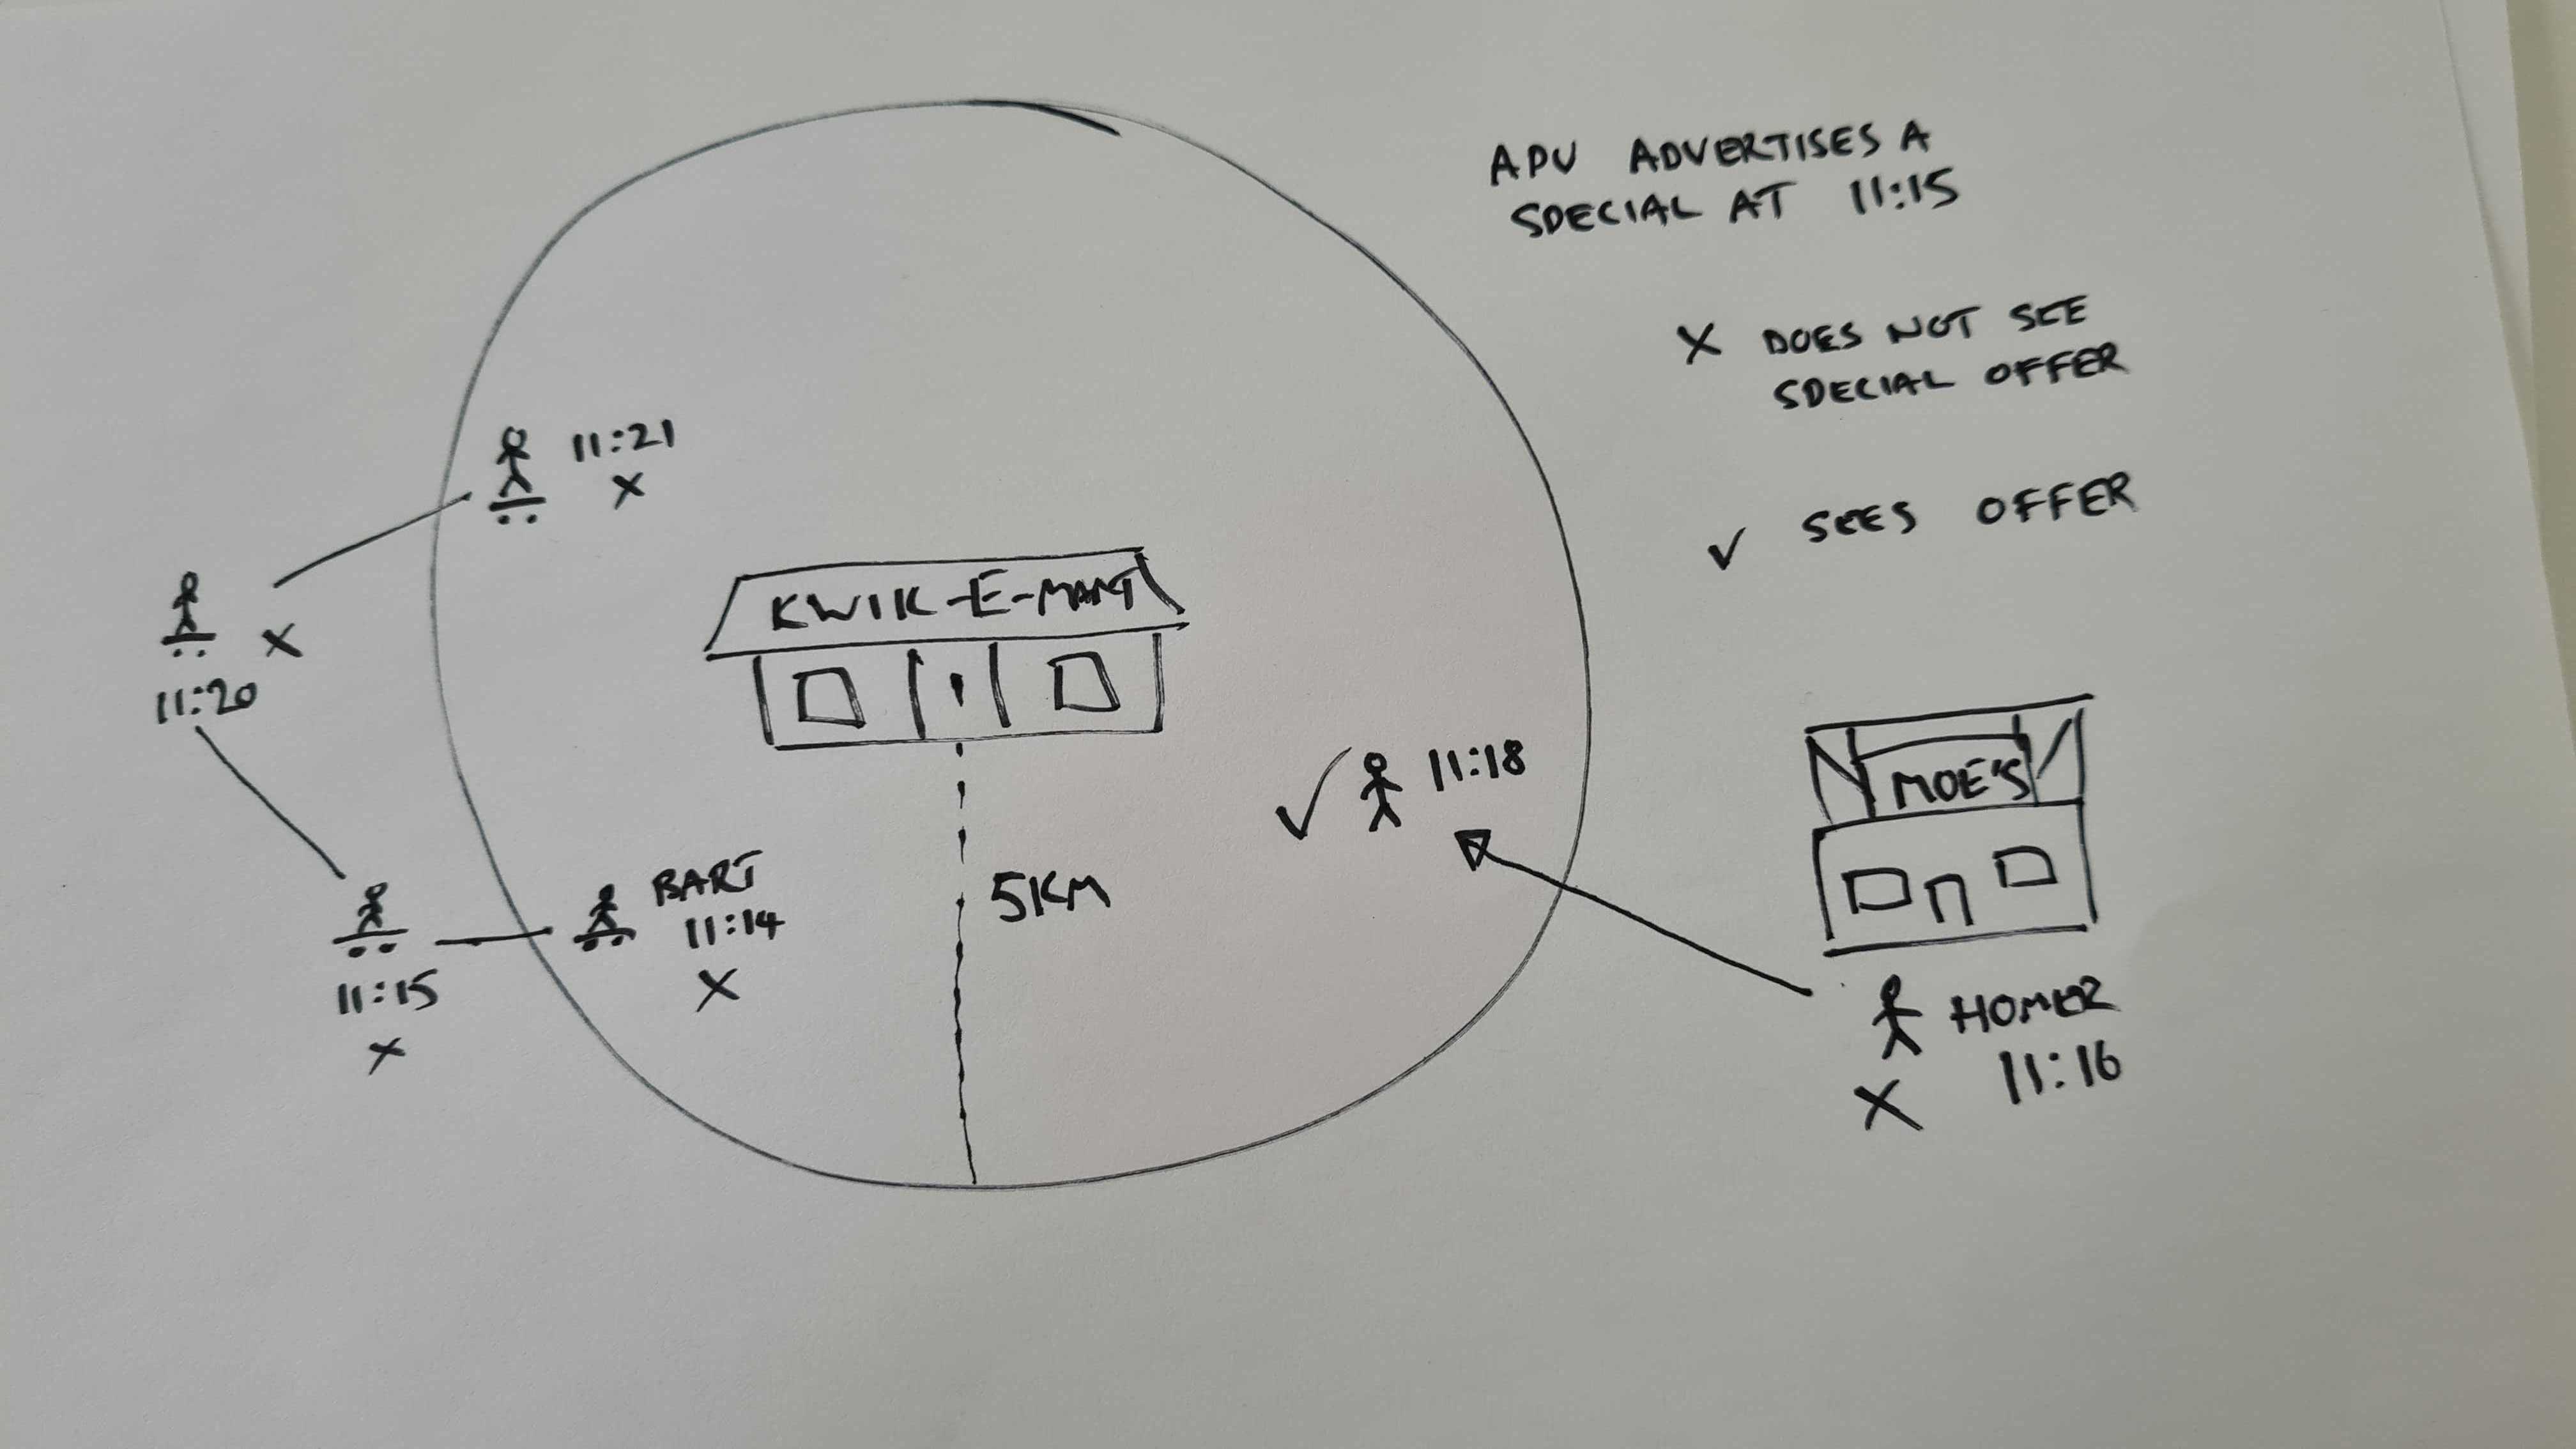 APU ADVERTISES A
SPECIAL AT 11:15
X DOES NOT SEE
SPECIAL OFFER
✓ SEES OFFER
11:21
X
KWIK-E-MART
X
11:20
MOE'S
✓ 11:18
5KM
BART
11:14
X
11:15
X
HOMER
11:16
X